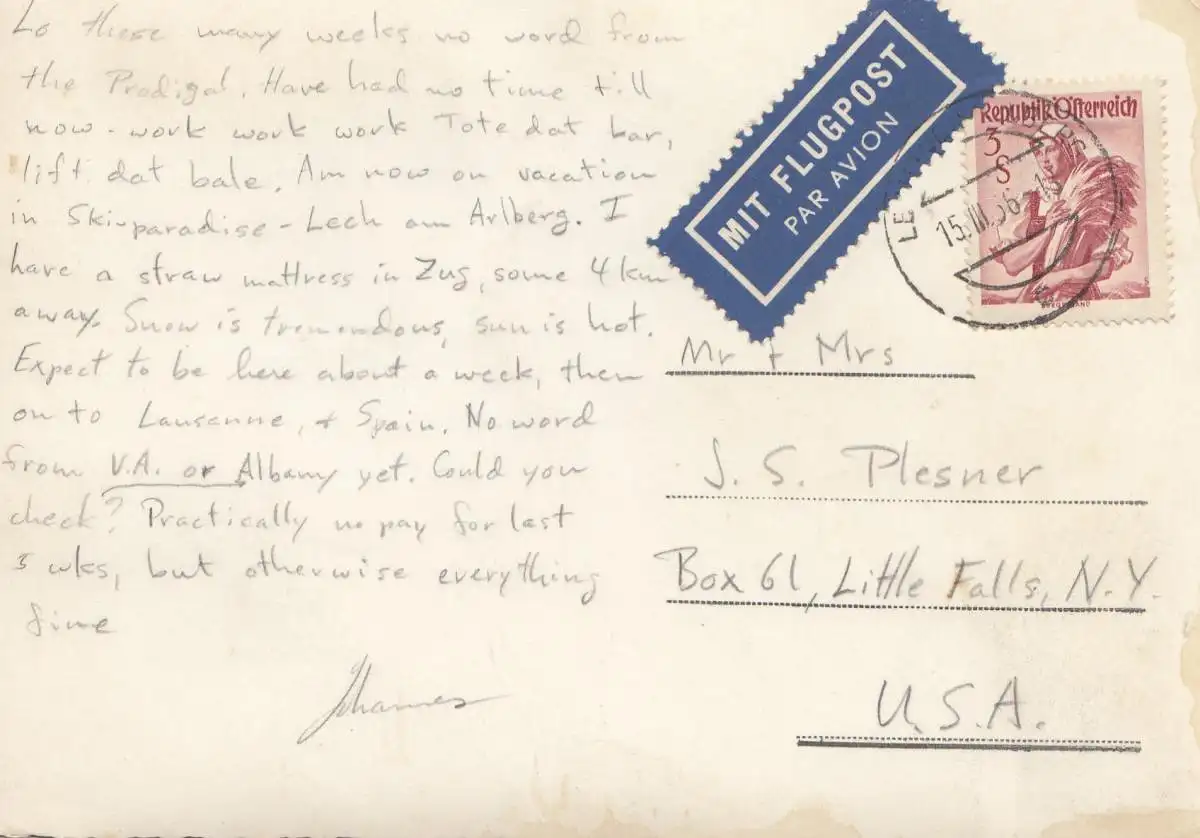 Lo these many weeks no word from
the Prodigal. Have had no time till
now - work work work Tote dat bar,
lift dat bale. Am now on vacation
in Ski-paradise - Lech am Arlberg. I
have a straw mattress in Zug, some 4 km
away. Snow is tremendous, sun is hot.
Expect to be here about a week, then
on to Lausanne, + Spain. No word
from V.A. or Albany yet. Could you
check? Practically no pay for last
3 wks, but otherwise everything
fine
Johannes
MIT FLUGPOST
PAR AVION
Republik Österreich
3
S
LE
15.III.56-15
Mr + Mrs
J. S. Plesner
Box 61, Little Falls, N.Y.
U.S.A.